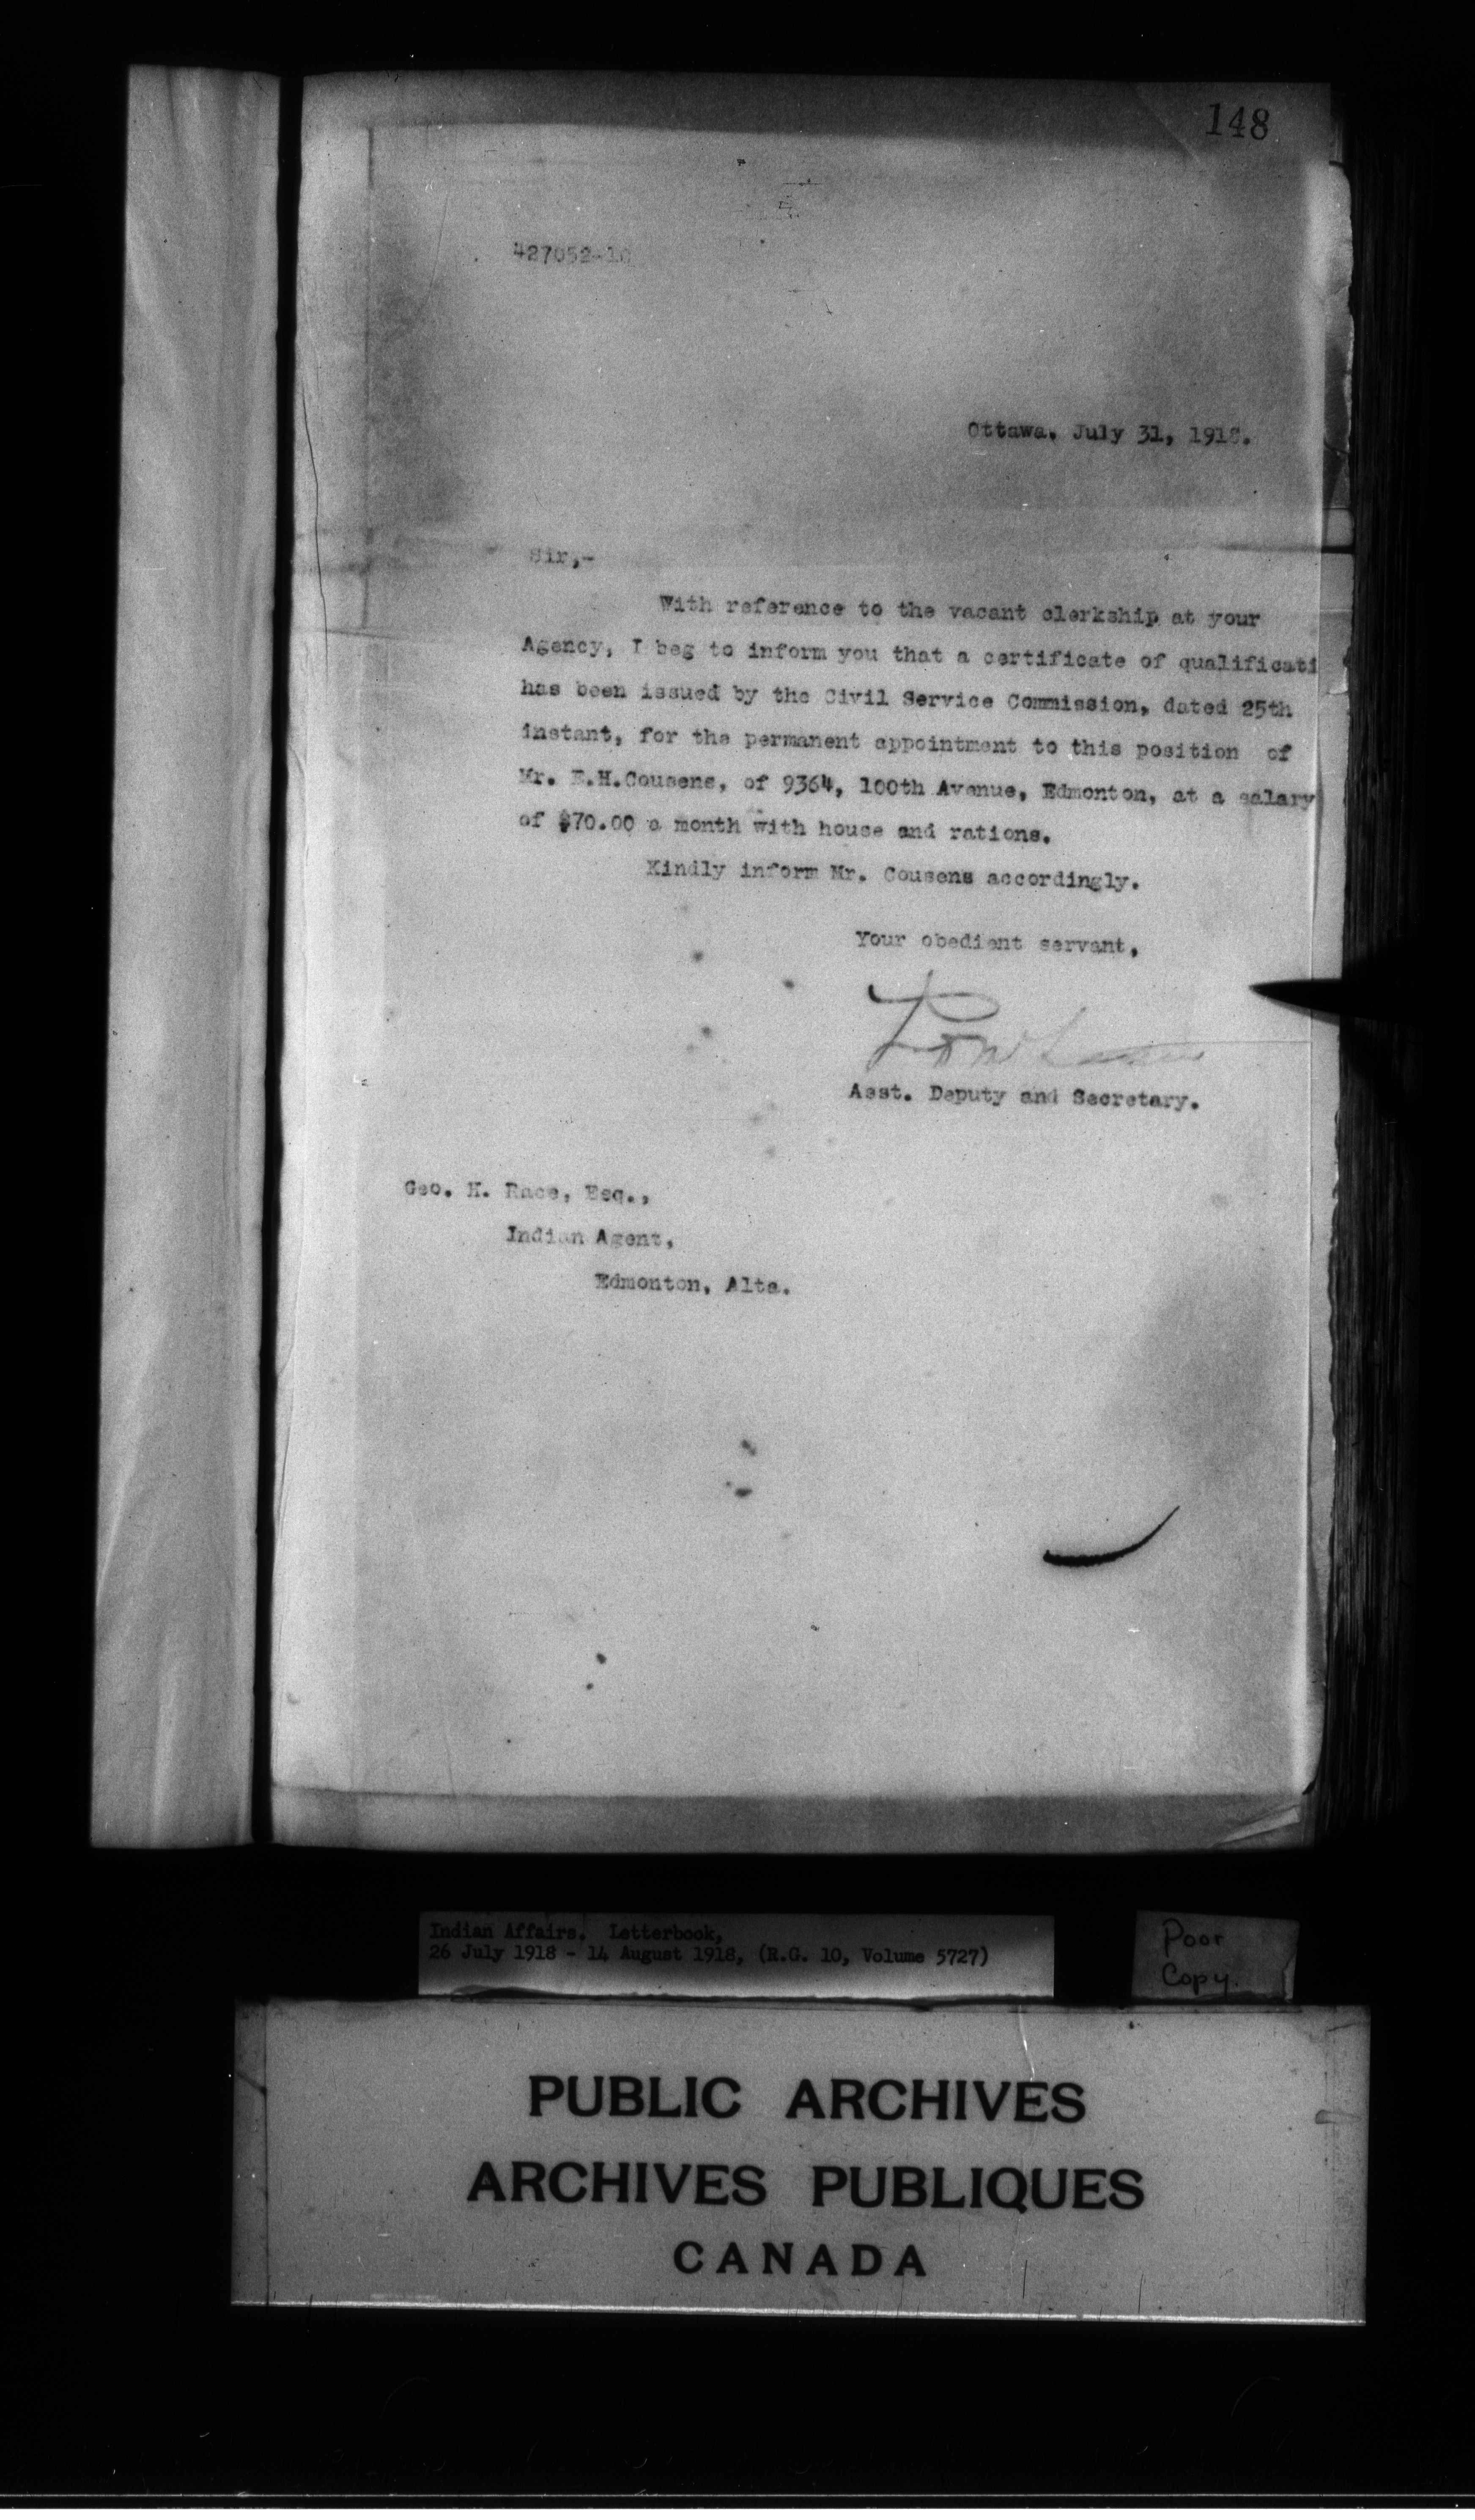 148
427052-10
Ottawa. July 31, 1918.
Sir,-
With reference to the vacant clerkship at your
Agency, I beg to inform you that a certificate of qualificati
has been issued by the Civil Service Commission, dated 25th
instant, for the permanent appointment to this position of
Mr. E.H.Cousens, of 9364, 100th Avenue, Edmonton, at a salary
of $70.00 a month with house and rations.
Kindly inform Mr. Cousens accordingly.
Your obedient servant,
Asst. Deputy and Secretary.
Geo. H. Race, Esq.,
Indian Agent,
Edmonton, Alta.
Indian Affairs. Letterbook,
26 July 1918 - 14 August 1918, (R.G. 10, Volume 5727)
Poor
Copy.
PUBLIC ARCHIVES
ARCHIVES PUBLIQUES
CANADA